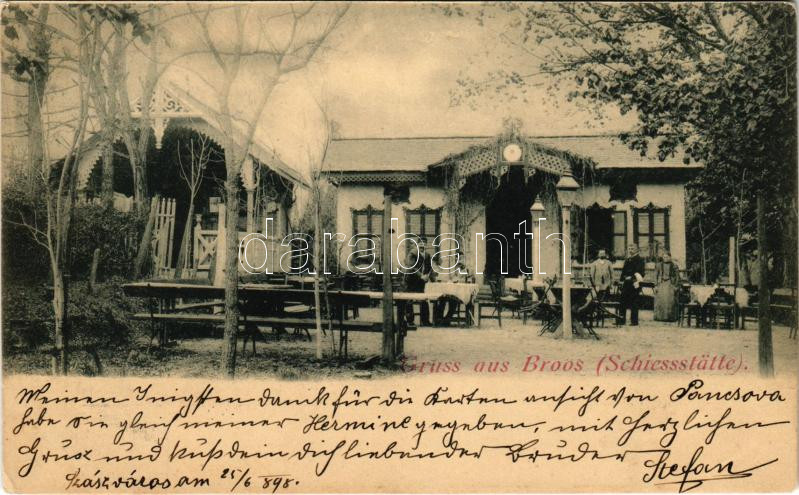 darabanth.com
Gruss aus Broos (Schiessstätte).
Weinen Inigsten danck für die Karten ansicht von Pancsova
habe Sie gleich meiner Hermine gegeben, mit herzlichen
Grusz und Kuß dein dich liebender Bruder
Stefan
Szászváros am 25/6 898.